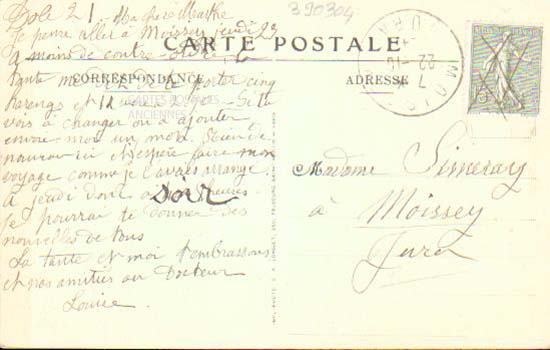 390304
Dole 21. Ma chère Marthe
Je pense aller à Moissey jeudi 23
à moins de contre-ordre, la
CARTE POSTALE
CORRESPONDANCE
ADRESSE
tante me dit de te porter cinq
harengs et 12
CARTES POSTALES
ANCIENNES
Si tu
vois à changer ou à ajouter
envoie moi un mot. Rien de
nouveau ici et j'espère faire mon
voyage comme je l'avais arrangé
à jeudi donc à heures
soir
Je pourrai te donner des
nouvelles de tous
La tante et moi t'embrassons
et nos amitiés au Docteur
Louise
Madame Simeray
à Moissey
Jura